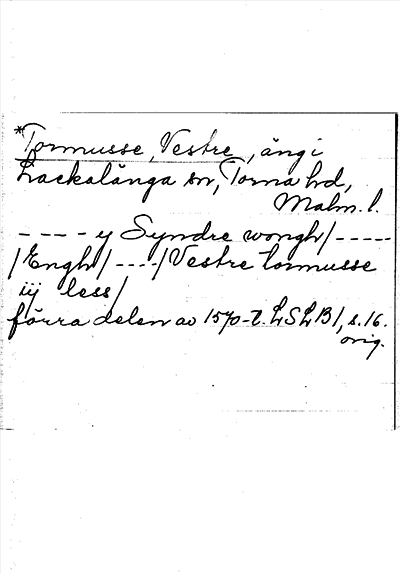 *Tormusse, Vestre, äng i
Lackalänga sn, Torna hd,
Malm. l.
---- y Syndre wongh/-----
/Engh/----/Vestre tormusse
iij less/
förra delen av 1570-t. LSLB1, s. 16.
orig.